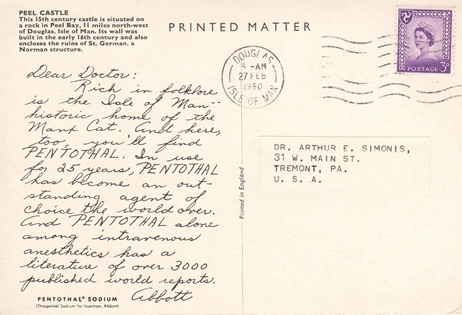 PEEL CASTLE
This 15th century castle is situated on
a rock in Peel Bay, 11 miles north-west
of Douglas, Isle of Man. Its wall was
built in the early 16th century and also
encloses the ruins of St. German, a
Norman structure.
PRINTED MATTER
DOUGLAS
5-AM
27 FEB
1960
ISLE OF MAN
POSTAGE
3D
Dear Doctor:
Rich in folklore
is the Isle of Man--
historic home of the
Manx Cat. And here,
too, you'll find
PENTOTHAL. In use
for 25 years, PENTOTHAL
has become an out-
standing agent of
choice the world over.
And PENTOTHAL alone
among intravenous
anesthetics has a
literature of over 3000
published world reports.
Abbott
PENTOTHAL® SODIUM
(Thiopental Sodium for Injection, Abbott)
Printed in England
DR. ARTHUR E. SIMONIS,
31 W. MAIN ST.
TREMONT, PA.
U. S. A.